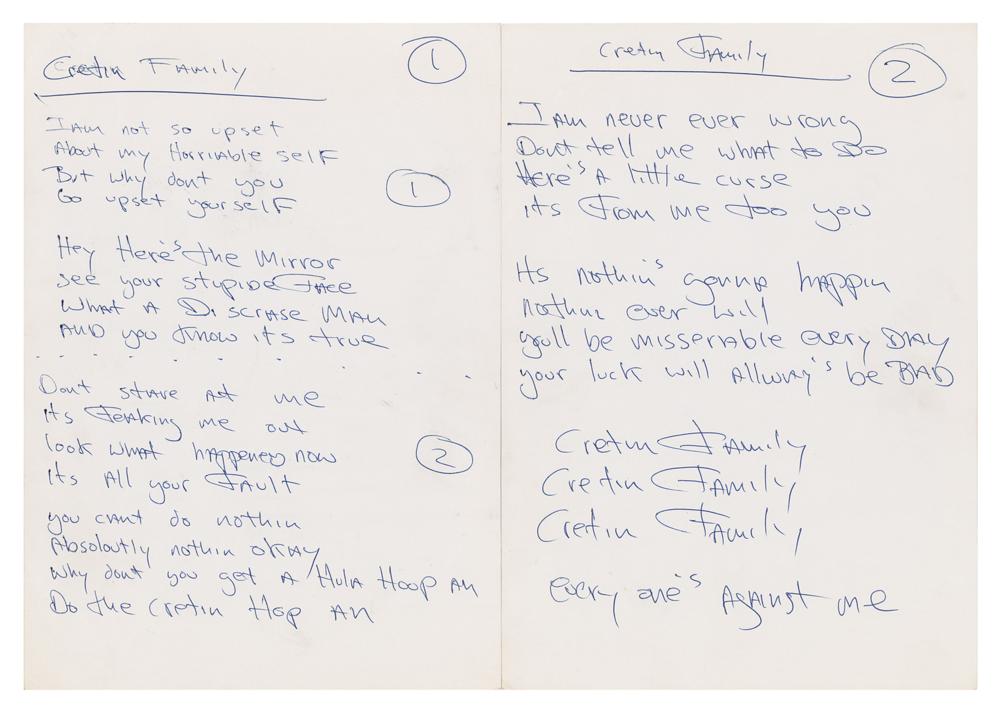 Cretin Family
1
I Am not so upset
About my Horriable self
But why dont you
Go upset yourself
1
Hey Here's the Mirror
see your stupide Face
What A Discrase Man
AND you know it's true
Dont stare At me
its Freaking me out
look what happened now
2
its All your Fault
you cant do nothin
Absoloutly nothin okay
Why dont you get A Hula Hoop An
Do the Cretin Hop An
Cretin Family
2
I Am never ever wrong
Dont tell me what to Do
Here's A little curse
its From me too you
Its nothin's gonna happin
nothin ever will
youll be misserable every DAY
your luck will Allway's be BAD
Cretin Family
Cretin Family
Cretin Family
every one's Against me